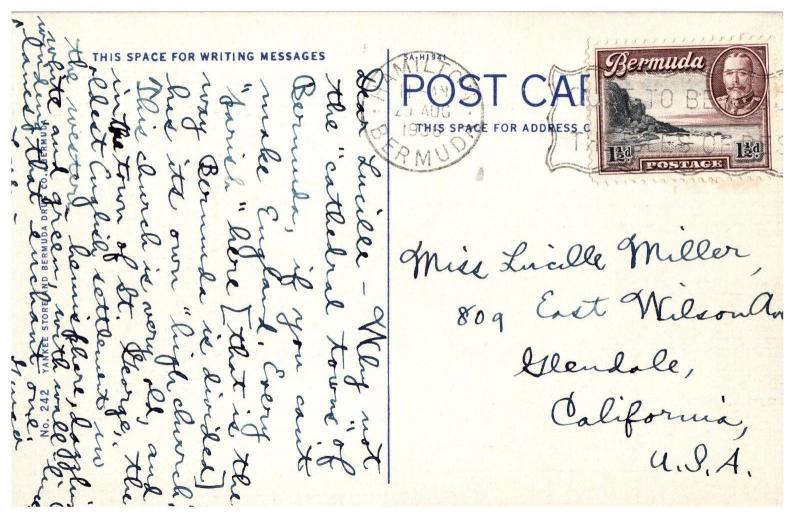 THIS SPACE FOR WRITING MESSAGES
Dear Lucille - Why not
the "cathedral towns" of
Bermuda, if you can't
make England. Every
"parish" here [that is the
way Bermuda is divided]
has its own "high church".
This church is very old, and
in the town of St. George, the
oldest English settlement in
the western hemisphere, dazzling
white and green, with wall lined
winding lanes that enchant one.
Love -
No. 242 YANKEE STORE AND BERMUDA DRUG CO., BERMUDA
SA-H1941
POST CAR
THIS SPACE FOR ADDRESS O
HAMILTON
AUG
BERMUDA
Bermuda
1½d 1½d
POSTAGE
TO BE
Miss Lucille Miller,
809 East Wilson Av
Glendale,
California,
U.S.A.